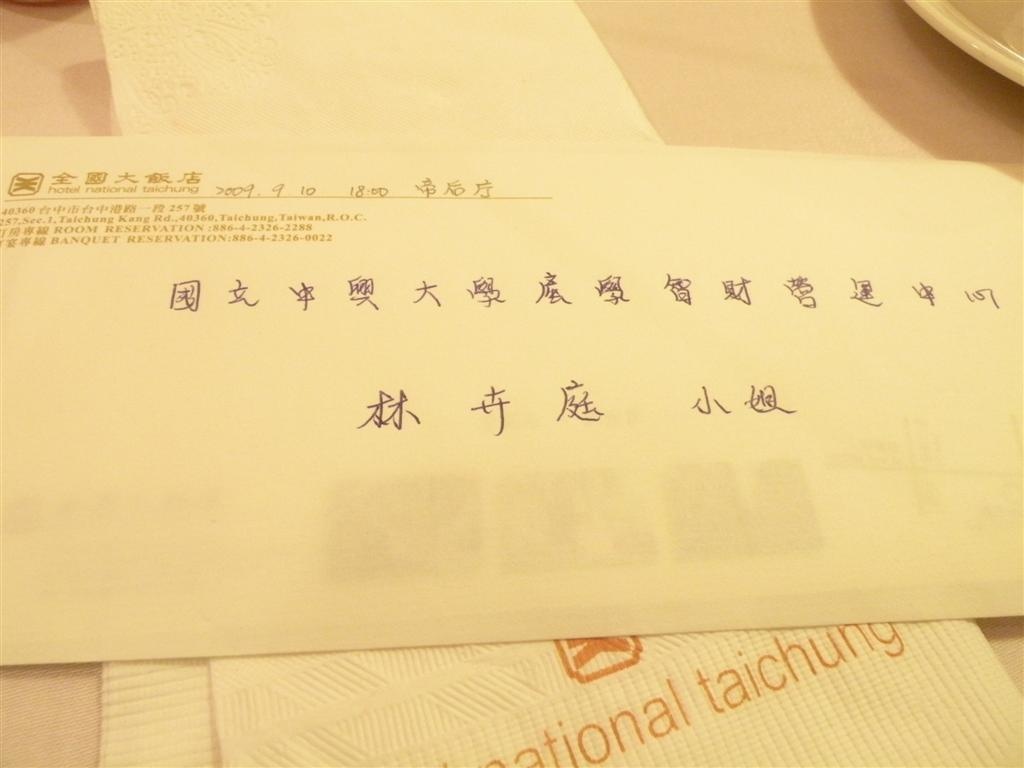 全國大飯店
hotel national taichung 2009.9.10 18:00 帝后庁
40360 台中市台中港路一段 257 號
257,Sec.1,Taichung Kang Rd.,40360,Taichung,Taiwan,R.O.C.
訂房專線 ROOM RESERVATION :886-4-2326-2288
訂宴專線 BANQUET RESERVATION:886-4-2326-0022
國立中興大學產學智財營運中心
林卉庭 小姐
national taichung